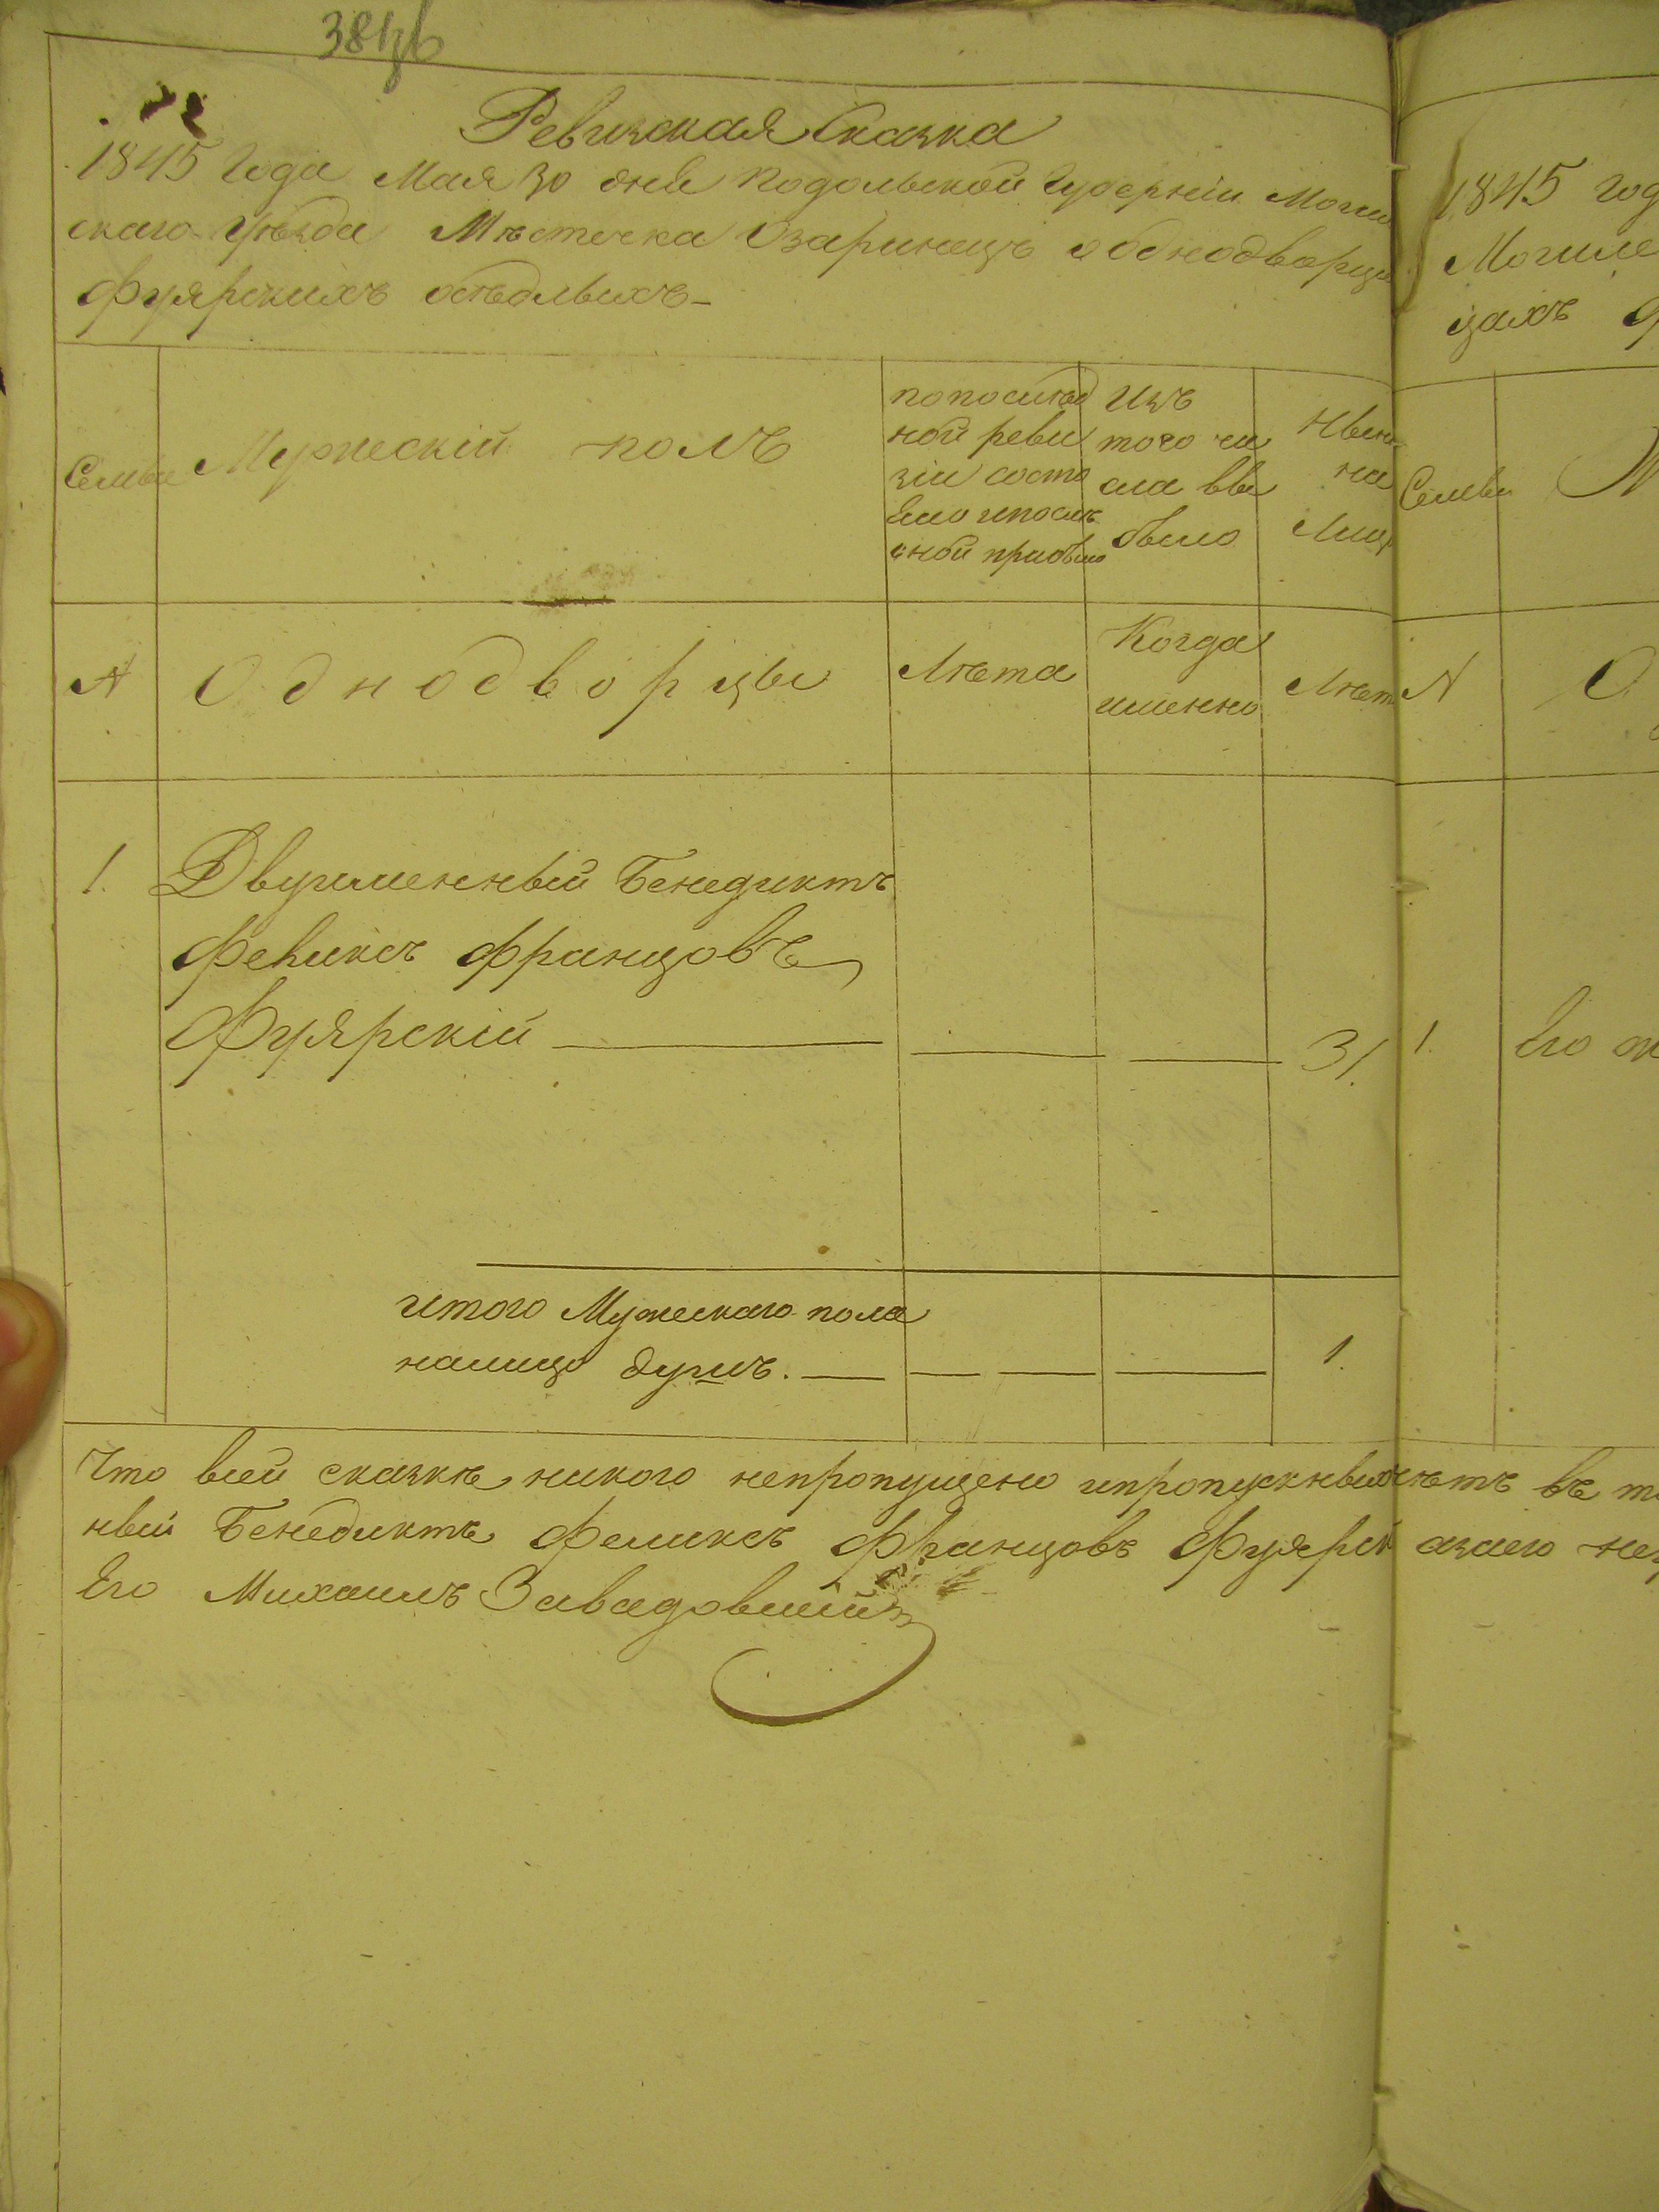 38
Ревизская Сказка
1845 Года Мая 30 дня Подольской Губерніи Моги
скаго уѣзда Мѣстечка Озаринецъ о однодворца
Фуярскихъ осѣдлыхъ
Семьи
Мужескій полъ
попослѣд
ной реви
зіи состо
яло ипослѣ
оной прибыло
Изъ
того чи
сла вы
было
Ныне
на
Лиц
N
Однодворцы
Лѣта
Когда
именно
Лѣт
1.
Двуименный Бенедиктъ
Феликсъ Францовъ
Фуярскій
31.
итого Мужескаго пола
налицо душъ.
1.
Что всей сказкѣ никого непропущено ипропускныхъ нѣтъ въ т
ный Бенедиктъ Феликсъ Францовъ Фуярск
Его Михаилъ Завадовскій
1845 год
Могиле
цахъ
Семьи
М
N
О
1.
Его ж